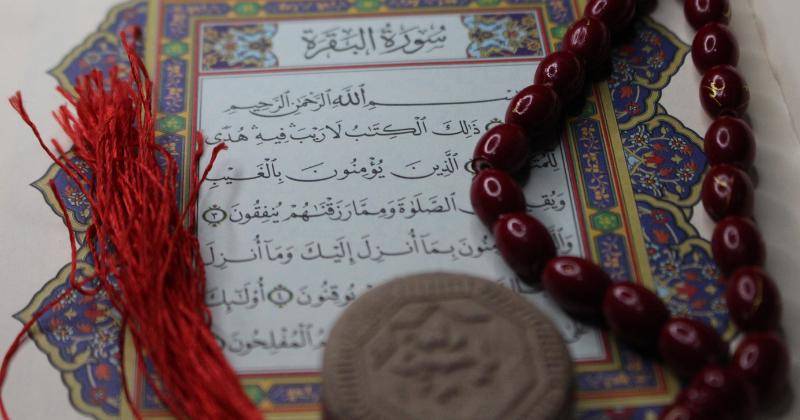 سُورَةُ الْبَقَرَةِ
ـمِ اللَّهِ الرَّحْمَٰنِ الرَّحِيمِ
ذَٰلِكَ الْكِتَٰبُ لَا رَيْبَ فِيهِ هُدًى
الَّذِينَ يُؤْمِنُونَ بِالْغَيْبِ
وَيُقِـ الصَّلَوٰةَ وَمِمَّا رَزَقْنَٰهُمْ يُنفِقُونَ ٣
بِمَا أُنزِلَ إِلَيْكَ وَمَا أُنزِلَ
يُوقِنُونَ ٤ أُوْلَٰئِكَ
الْمُفْلِحُونَ